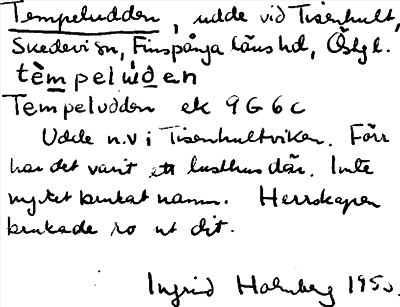 Tempeludden, udde vid Tisenhult,
Skedevi sn, Finspånga läns hd, Östgl.
tèmpelúden
Tempeludden ek 9G6c
Udde n.v i Tisenhultviken. Förr
har det varit ett lusthus där. Inte
mycket brukat namn. Herrskapen
brukade ro ut dit.
Ingrid Holmberg 1950.